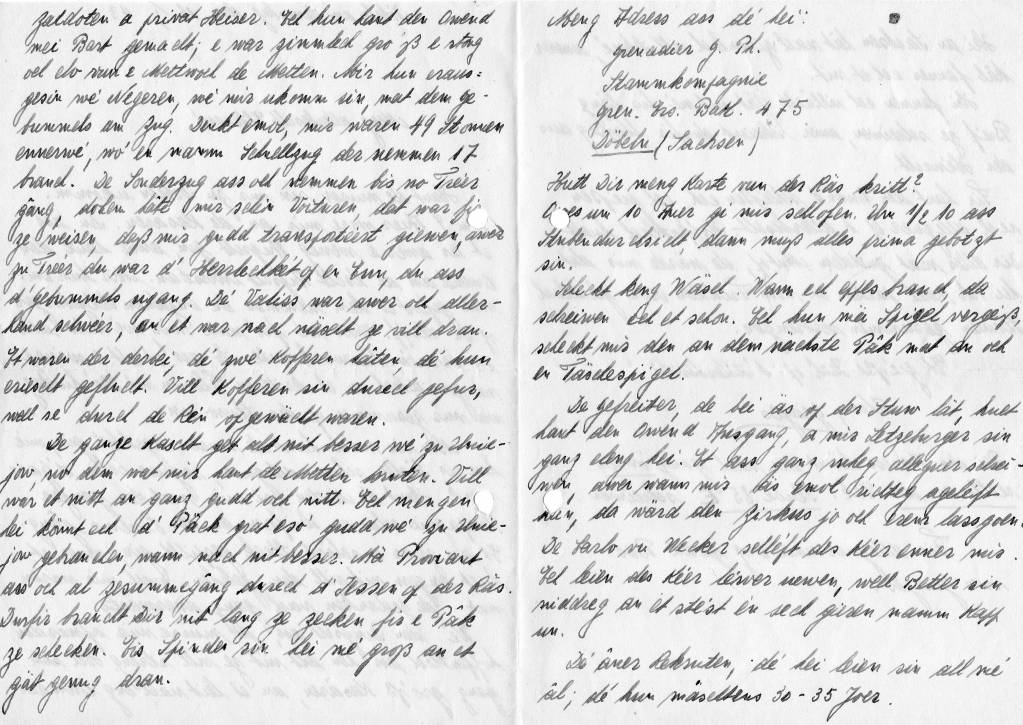 zaldoten a privat Heiser. Ech hun haut den Owend
mei Bart gemacht; e war zimmlech gro'ß e stong
och elo vun e Mettwoch de Metten. Mir hun eraus=
gesin we' Negeren, we' mir ukomm sin, mat dem ge-
bummels am Zug. Denkt emol, mir waren 49 Stonnen
ennerwé, wo' en warm Schellzug der nemmen 17
brauch. De Sonderzug ass och nemmen bis no Tréer
gäng, dohem häte mir schéin Voituren, dat war fir
ze weisen, daß mir gudd transportéiert giewen, awer
zu Tréer du war d' Herrlechkét of en Enn, du ass
d'gebummels ugang. De' Valiss war awer och aller-
hand schwéer, an et war nach näischt ze vill dran.
Et waren der derbei, de' zwé Kofferen häten, dé hun
eréischt geflucht. Vill Kofferen sin durech gefur,
well se durch de Rén ofgewécht waren.
De ganze Klascht get alt nit besser we' zu Wnie-
jow, no dem wat mir haut de Metten kruten. Vill
war et nitt an ganz gudd och nitt. Ech mengen
hei könnt ech d' Päck grat eso gudd we' zu Wnie-
jow gebrauchen, wann nach nit besser. Mä Proviant
ass och al zesummegäng durech d'Iessen of der Räs.
Durfir braucht Dir nit lang ze zecken fir e Päk
ze schecken. Eis Spinder sin hei me' groß an et
gät genug dran.
Meng Adress ass dé hei:
Grenadier G. Ph.
Stammkompagnie
Gren. Ers. Batl. 475
Döbeln (Sachsen)
Hutt Dir meng Karte vun der Räs kritt?
Owes um 10 Auer ge mir schlofen. Um 1/2 10 ass
Stubendurchsicht dann muß alles prima gebotzt
sin.
Scheckt keng Wäsch. Wann ech eppes brauch, da
schreiwen ech et schon. Ech hun mei Spigel vergeß,
scheckt mir den an dem nächste Päk mat an och
en Täschespigel.
De gefreiter, de bei äs of der Stuw lät, huet
haut den Owend Ausgang, a mir Letzeburger sin
ganz eleng hei. Et ass ganz roheg alleguer schrei-
wen, awer wann mir bis emol richteg agelieft
hun, da wärd den Zirkus jo och erem lassgoen.
De Carlo vu Wecker schléift des Kéer enner mir.
Ech leien des Kéer léiwer uewen, well Better sin
niddreg an et stéist én sech giren mamm Kapp
un.
De' äner Rekruten, de' hei leien sin all me'
äl; de' hun mäschtens 30-35 Joer.